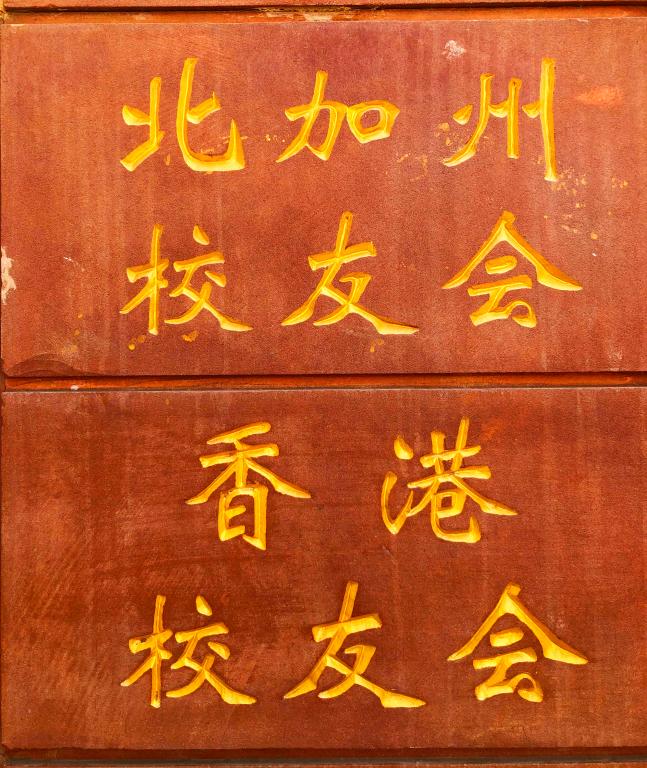 北加州
校友会
香港
校友会